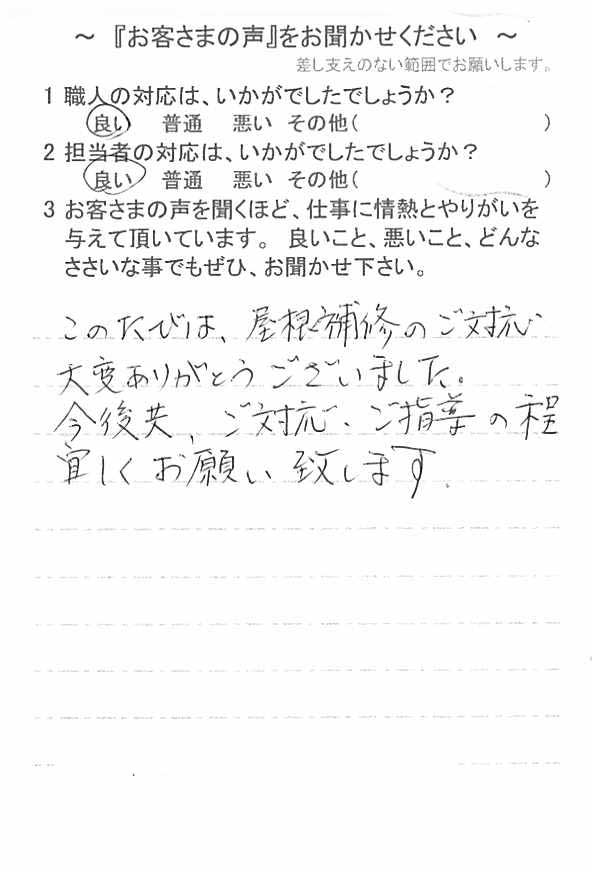 ～ 『お客さまの声』をお聞かせください ～
差し支えのない範囲でお願いします。
1 職人の対応は、いかがでしたでしょうか？
良い 普通 悪い その他( )
2 担当者の対応は、いかがでしたでしょうか？
良い 普通 悪い その他( )
3 お客さまの声を聞くほど、仕事に情熱とやりがいを
与えて頂いています。 良いこと、悪いこと、どんな
ささいな事でもぜひ、お聞かせ下さい。
このたびは、屋根補修のご対応
大変ありがとうございました。
今後共、ご対応、ご指導の程
宜しくお願い致します.